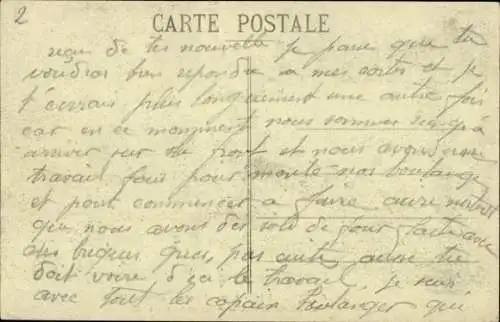 2
CARTE POSTALE
reçus de tes nouvelle je pense que tu
voudras bien repondre a mes cartes et je
t'écrirais plus longuement une autre fois
car en ce moment nous sommes
arriver sur du front et nous avons
travail fous pour monté nos boulange
et pour commencer a faire
que nous avons des de four
des briques pas cuite aussi tu
doit voire d'ici le travail, je suis
avec tout les copain boulanger qui